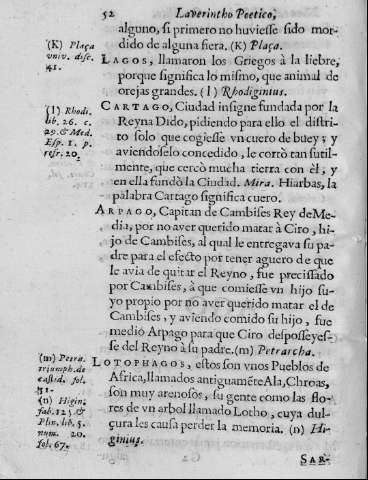 52 Laverintho Poetico,
alguno, si primero no huviesse sido mor-
dido de alguna fiera. (K) Plaça.
(K) Plaça
univ. disc.
41.
LAGOS, llamaron los Griegos à la liebre,
porque significa lo mismo, que animal de
orejas grandes. (I) Rhodiginius.
CARTAGO, Ciudad insigne fundada por la
(I) Rhodi.
lib. 26. c.
29. & Med.
Esp. 1. p.
resr. 20.
Reyna Dido, pidiendo para ello el distri-
to solo que cogiesse vn cuero de buey; y
aviendoselo concedido, le cortò tan sutil-
mente, que cercò mucha tierra con èl, y
en ella fundò la Ciudad. Mira. Hiarbas, la
palabra Cartago significa cuero.
ARPAGO, Capitan de Cambises Rey de Me-
dia, por no aver querido matar à Ciro, hi-
jo de Cambises, al qual le entregava su pa-
dre para el efecto por tener aguero de que
le avia de quitar el Reyno, fue precissado
por Cambises, à que comiesse vn hijo su-
yo propio por no aver querido matar el de
Cambises, y aviendo comido su hijo, fue
medió Arpago para que Ciro desposseyes-
se del Reyno à su padre. (m) Petrarcha.
(m) Petra.
triumph. de
castid. fol.
51.
LOTOPHAGOS, estos son vnos Pueblos de
Africa, llamados antiguamẽte Ala, Chroas,
son muy arenosos, su gente como las flo-
(n) Higin.
fab. 125. &
Plin. lib. 5.
num. 20.
fol. 67.
res de vn arbol llamado Lotho, cuya dul-
çura les causa perder la memoria. (n) Hi-
ginius.
SAR-